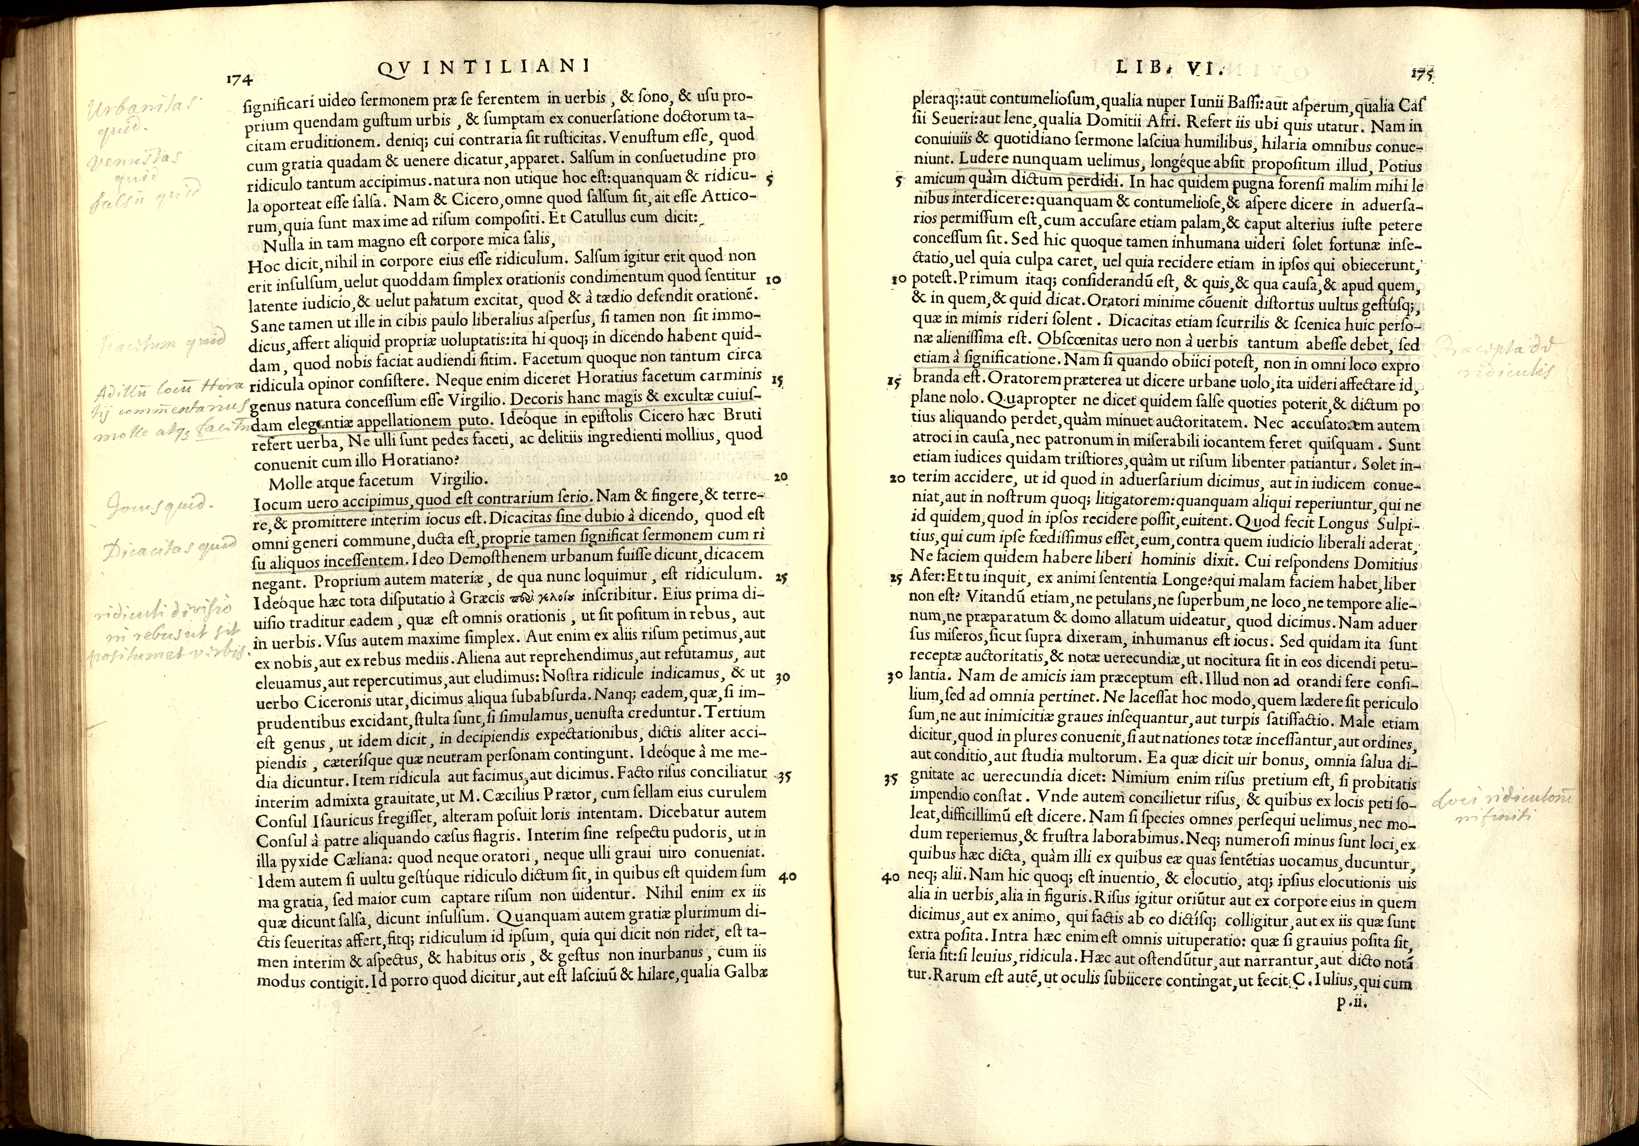 174
QVINTILIANI
Urbanitas
quid.
venustas
quid
salsū quid
facetum quid
molle atq; facetū
Jocus quid.
Dicacitas quid
ridiculi divisio
in rebus ut sit
positum et verbis.
significari uideo sermonem præ se ferentem in uerbis, & sono, & usu pro-
prium quendam gustum urbis, & sumptam ex conuersatione doctorum ta-
citam eruditionem. deniq; cui contraria sit rusticitas. Venustum esse, quod
cum gratia quadam & uenere dicatur, apparet. Salsum in consuetudine pro
ridiculo tantum accipimus. natura non utique hoc est: quanquam & ridicu- 5
la oporteat esse salsa. Nam & Cicero, omne quod salsum sit, ait esse Attico-
rum, quia sunt maxime ad risum compositi. Et Catullus cum dicit:
Nulla in tam magno est corpore mica salis,
Hoc dicit, nihil in corpore eius esse ridiculum. Salsum igitur erit quod non
erit insulsum, uelut quoddam simplex orationis condimentum quod sentitur 10
latente iudicio, & uelut palatum excitat, quod & à tædio defendit orationē.
Sane tamen ut ille in cibis paulo liberalius aspersus, si tamen non sit immo-
dicus, affert aliquid propriæ uoluptatis: ita hi quoq; in dicendo habent quid-
dam, quod nobis faciat audiendi sitim. Facetum quoque non tantum circa
ridicula opinor consistere. Neque enim diceret Horatius facetum carminis 15
genus natura concessum esse Virgilio. Decoris hanc magis & excultæ cuius-
dam elegentiæ appellationem puto. Ideóque in epistolis Cicero hæc Bruti
refert uerba, Ne ulli sunt pedes faceti, ac delitiis ingredienti mollius, quod
conuenit cum illo Horatiano?
Molle atque facetum Virgilio. 20
Iocum uero accipimus, quod est contrarium serio. Nam & fingere, & terre-
re, & promittere interim iocus est. Dicacitas sine dubio à dicendo, quod est
omni generi commune, ducta est, proprie tamen significat sermonem cum ri
su aliquos incessentem. Ideo Demosthenem urbanum fuisse dicunt, dicacem
negant. Proprium autem materiæ, de qua nunc loquimur, est ridiculum. 25
Ideóque hæc tota disputatio à Græcis περὶ γελοίου inscribitur. Eius prima di-
uisio traditur eadem, quæ est omnis orationis, ut sit positum in rebus, aut
in uerbis. Vsus autem maxime simplex. Aut enim ex aliis risum petimus, aut
ex nobis, aut ex rebus mediis. Aliena aut reprehendimus, aut refutamus, aut
eleuamus, aut repercutimus, aut eludimus: Nostra ridicule indicamus, & ut 30
uerbo Ciceronis utar, dicimus aliqua subabsurda. Nanq; eadem, quæ, si im-
prudentibus excidant, stulta sunt, si simulamus, uenusta creduntur. Tertium
est genus, ut idem dicit, in decipiendis expectationibus, dictis aliter acci-
piendis, cæterísque quæ neutram personam contingunt. Ideóque à me me-
dia dicuntur. Item ridicula aut facimus, aut dicimus. Facto risus conciliatur 35
interim admixta grauitate, ut M. Cæcilius Prætor, cum sellam eius curulem
Consul Isauricus fregisset, alteram posuit loris intentam. Dicebatur autem
Consul à patre aliquando cæsus flagris. Interim sine respectu pudoris, ut in
illa pyxide Cæliana: quod neque oratori, neque ulli graui uiro conueniat.
Idem autem si uultu gestúque ridiculo dictum sit, in quibus est quidem sum 40
ma gratia, sed maior cum captare risum non uidentur. Nihil enim ex iis
quæ dicunt salsa, dicunt insulsum. Quanquam autem gratiæ plurimum di-
ctis seueritas affert, fitq; ridiculum id ipsum, quia qui dicit non ridet, est ta-
men interim & aspectus, & habitus oris, & gestus non inurbanus, cum iis
modus contigit. Id porro quod dicitur, aut est lasciuū & hilare, qualia Galbæ
LIB. VI.
175
pleraq;: aut contumeliosum, qualia nuper Iunii Bassi: aut asperum, qualia Cas
sii Seueri: aut lene, qualia Domitii Afri. Refert iis ubi quis utatur. Nam in
conuiuiis & quotidiano sermone lasciua humilibus, hilaria omnibus conue-
niunt. Ludere nunquam uelimus, longéque absit propositum illud, Potius
5 amicum quàm dictum perdidi. In hac quidem pugna forensi malim mihi le
nibus interdicere: quanquam & contumeliose, & aspere dicere in aduersa-
rios permissum est, cum accusare etiam palam, & caput alterius iuste petere
concessum sit. Sed hic quoque tamen inhumana uideri solet fortunæ inse-
ctatio, uel quia culpa caret, uel quia recidere etiam in ipsos qui obiecerunt,
10 potest. Primum itaq; considerandū est, & quis, & qua causa, & apud quem,
& in quem, & quid dicat. Oratori minime cōuenit distortus uultus gestúsq;,
quæ in mimis rideri solent. Dicacitas etiam scurrilis & scenica huic perso-
næ alienissima est. Obscœnitas uero non à uerbis tantum abesse debet, sed
etiam à significatione. Nam si quando obiici potest, non in omni loco expro
15 branda est. Oratorem præterea ut dicere urbane uolo, ita uideri affectare id,
plane nolo. Quapropter ne dicet quidem salse quoties poterit, & dictum po
tius aliquando perdet, quàm minuet auctoritatem. Nec accusatorem autem
atroci in causa, nec patronum in miserabili iocantem feret quisquam. Sunt
etiam iudices quidam tristiores, quàm ut risum libenter patiantur. Solet in-
20 terim accidere, ut id quod in aduersarium dicimus, aut in iudicem conue-
niat, aut in nostrum quoq; litigatorem: quanquam aliqui reperiuntur, qui ne
id quidem, quod in ipsos recidere possit, euitent. Quod fecit Longus Sulpi-
tius, qui cum ipse fœdissimus esset, eum, contra quem iudicio liberali aderat,
Ne faciem quidem habere liberi hominis dixit. Cui respondens Domitius
25 Afer: Et tu inquit, ex animi sententia Longe? qui malam faciem habet, liber
non est? Vitandū etiam, ne petulans, ne superbum, ne loco, ne tempore alie-
num, ne præparatum & domo allatum uideatur, quod dicimus. Nam aduer
sus miseros, sicut supra dixeram, inhumanus est iocus. Sed quidam ita sunt
receptæ auctoritatis, & notæ uerecundiæ, ut nocitura sit in eos dicendi petu-
30 lantia. Nam de amicis iam præceptum est. Illud non ad orandi fere consi-
lium, sed ad omnia pertinet. Ne lacessat hoc modo, quem lædere sit periculo
sum, ne aut inimicitiæ graues insequantur, aut turpis satisfactio. Male etiam
dicitur, quod in plures conuenit, si aut nationes totæ incessantur, aut ordines,
aut conditio, aut studia multorum. Ea quæ dicit uir bonus, omnia salua di-
35 gnitate ac uerecundia dicet: Nimium enim risus pretium est, si probitatis
impendio constat. Vnde autem concilietur risus, & quibus ex locis peti so-
leat, difficillimū est dicere. Nam si species omnes persequi uelimus, nec mo-
dum reperiemus, & frustra laborabimus. Neq; numerosi minus sunt loci, ex
quibus hæc dicta, quàm illi ex quibus eæ quas sentētias uocamus, ducuntur,
40 neq; alii. Nam hic quoq; est inuentio, & elocutio, atq; ipsius elocutionis uis
alia in uerbis, alia in figuris. Risus igitur oriūtur aut ex corpore eius in quem
dicimus, aut ex animo, qui factis ab eo dictísq; colligitur, aut ex iis quæ sunt
extra posita. Intra hæc enim est omnis uituperatio: quæ si grauius posita sit,
seria sit: si leuius, ridicula. Hæc aut ostendūtur, aut narrantur, aut dicto notā
tur. Rarum est autē, ut oculis subiicere contingat, ut fecit C. Iulius, qui cum
p.ii.
ridiculis
loci ridiculorū
infiniti